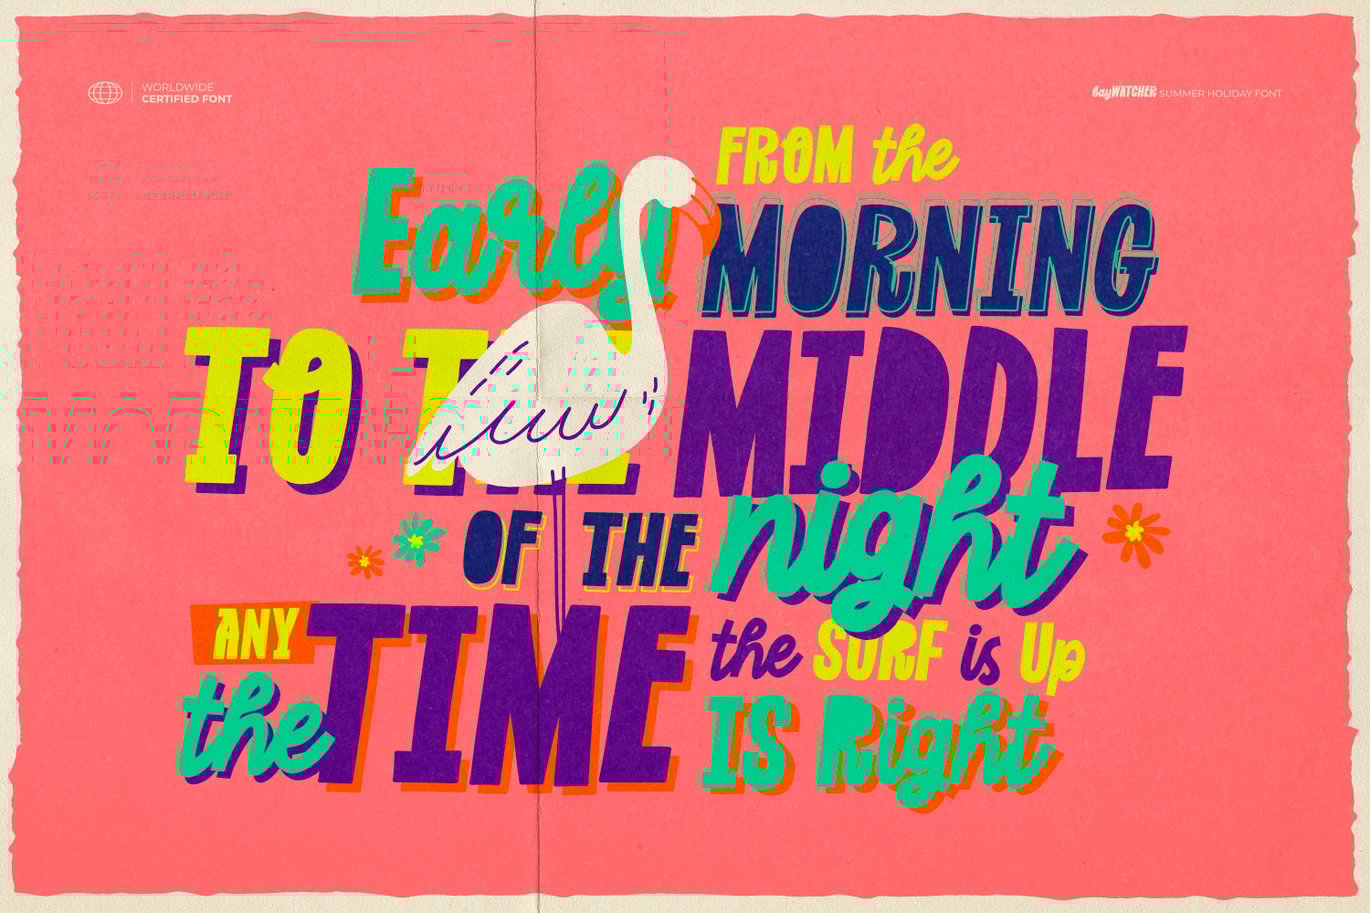 WORLDWIDE
CERTIFIED FONT
bayWATCHER SUMMER HOLIDAY FONT
FROM the
Early MORNING
TO THE MIDDLE
OF THE night
ANY
the TIME
the SURF is Up
IS Right